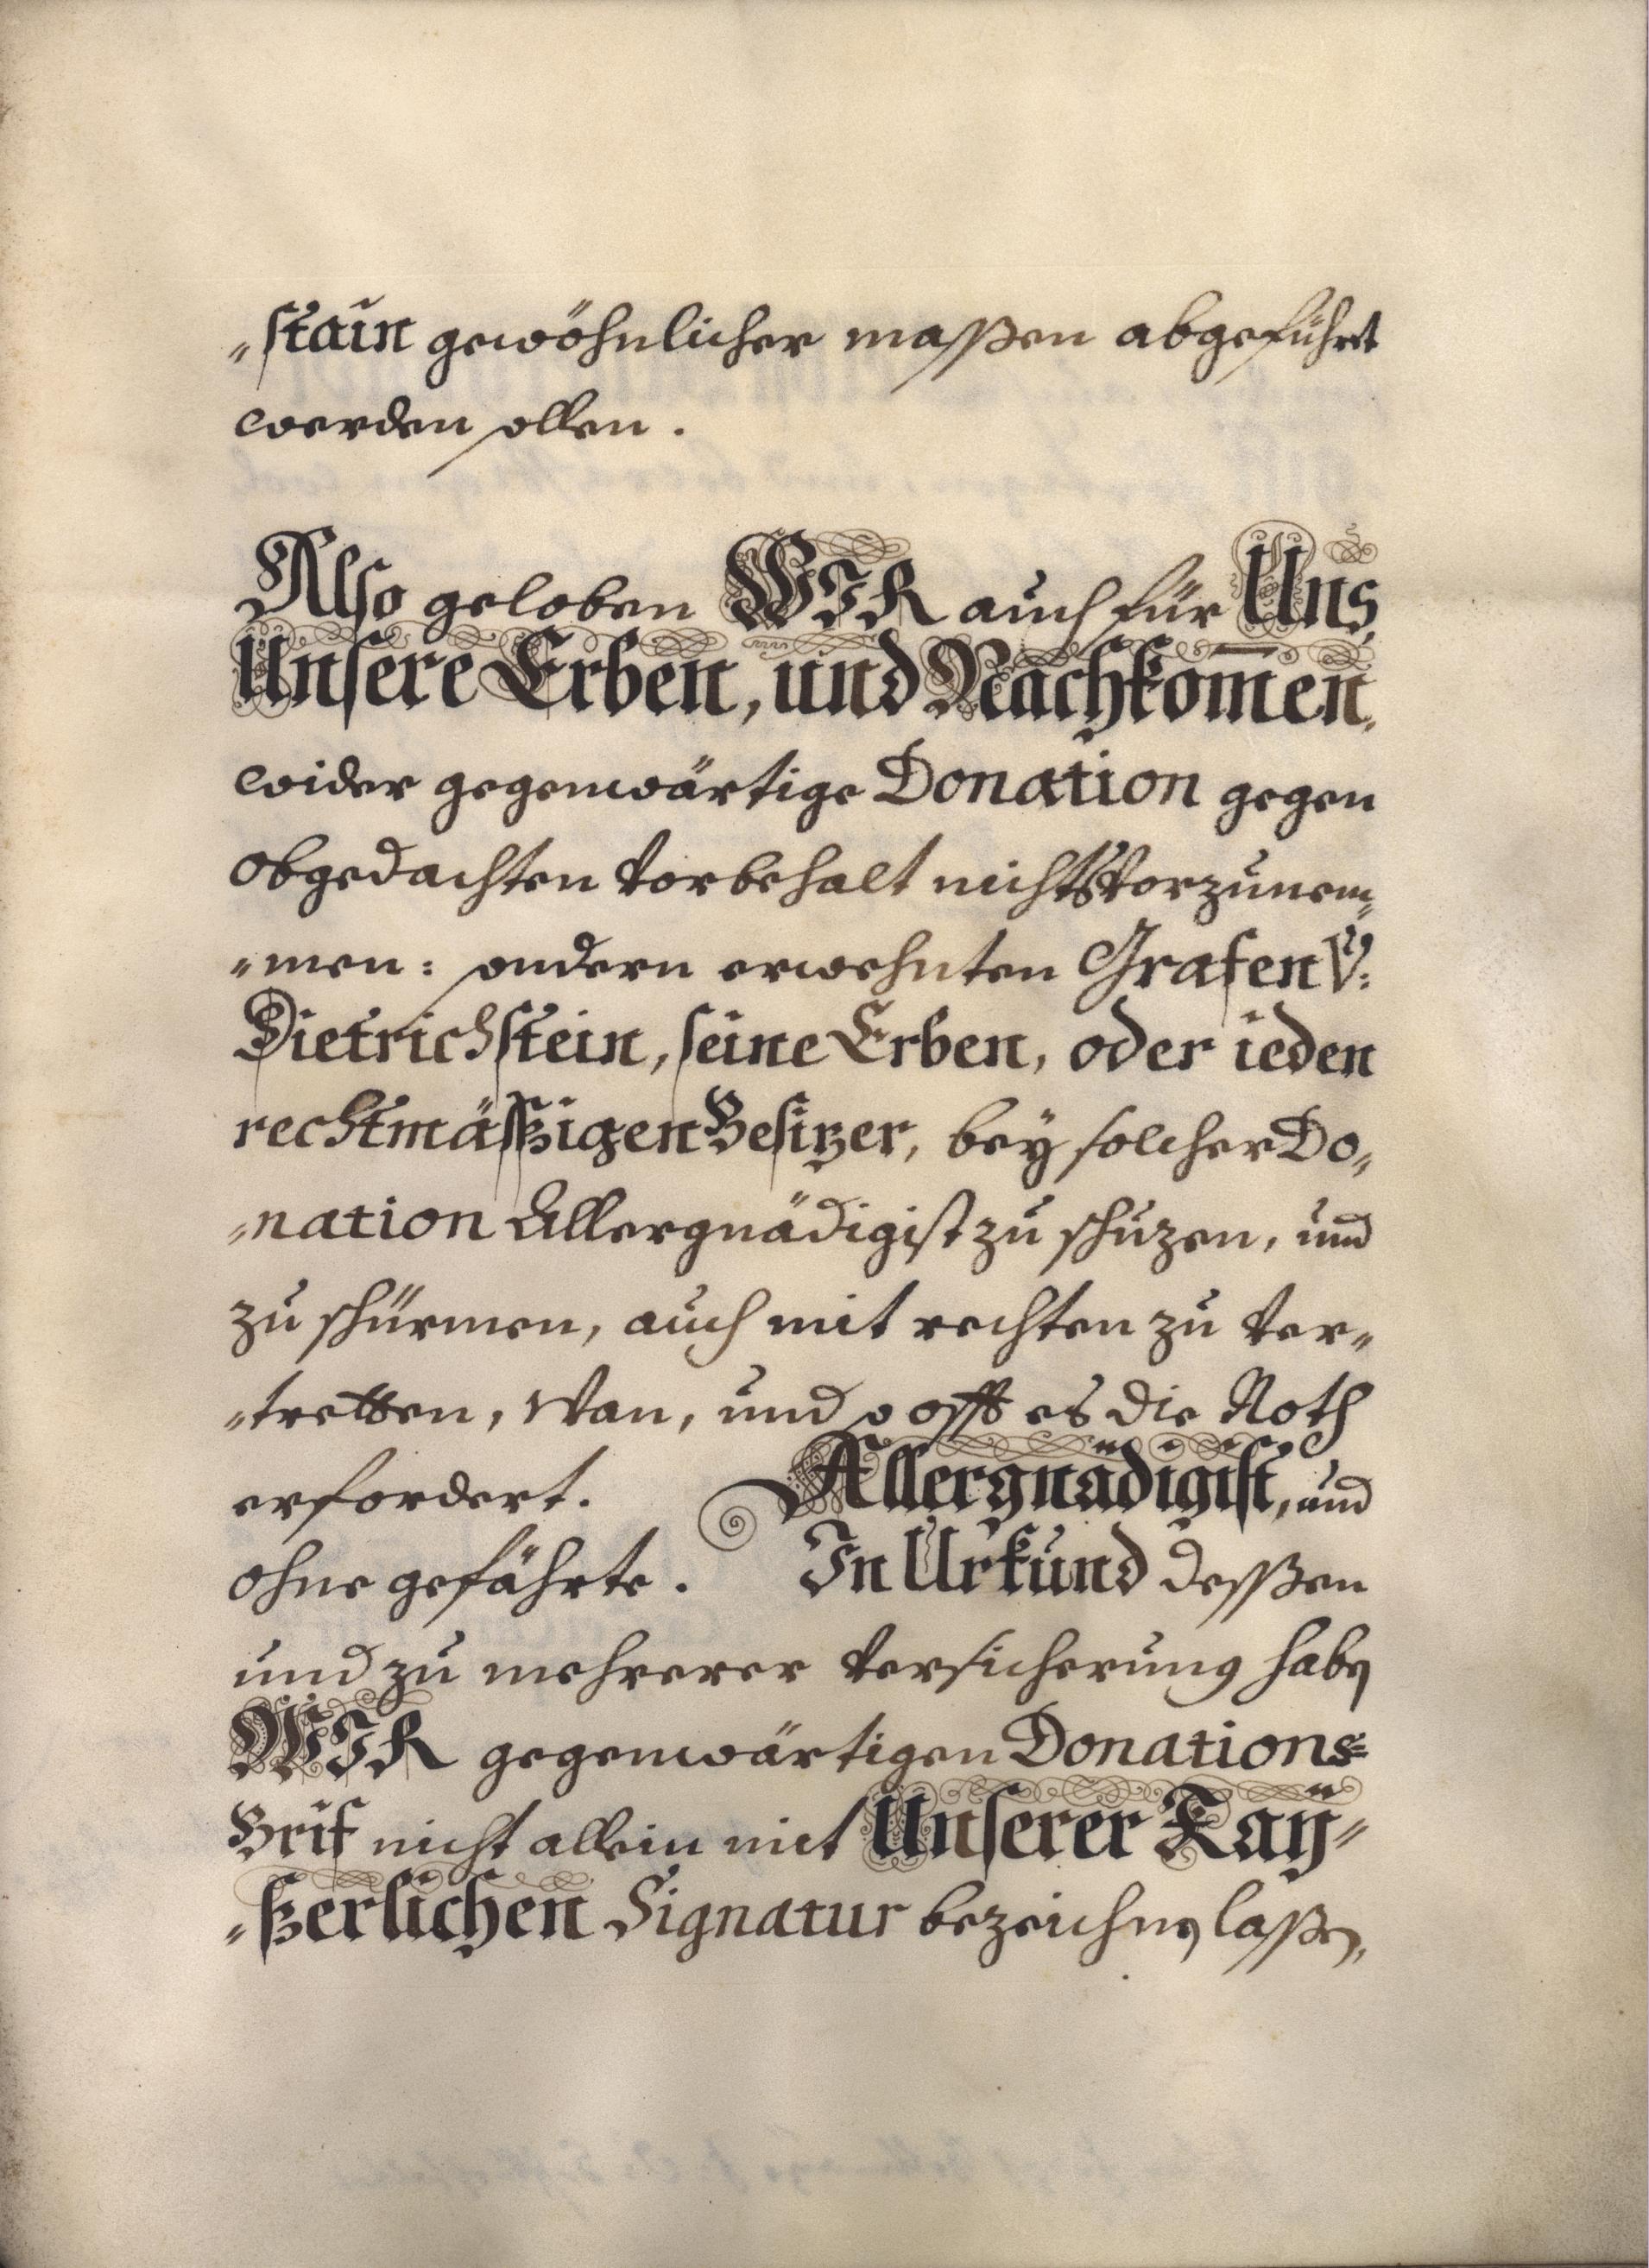 „stain gewöhnlicher massen abgeführt
werden sollen.
Also geloben WIR auch für Uns
Unsere Erben, und Nachkom̅en,
wider gegenwärtige Donation gegen
obgedachten vorbehalt nichts vorzunem„
„men: sondern erwehnten Grafen V:
Dietrichstein, seine Erben, oder ieden
rechtmäßigen Besizer, bey solcher Do„
„nation Allergnädigist zu schuzen, und
zu schürmen, auch mit rechten zu ver„
„tretten, Wan, und so offt es die Noth
erfordert. Allergnädigist, und
ohne gefährte. In Urkund dessen
und zu mehrerer versicherung haben
WIR gegenwärtigen Donations=
Brif nicht allein mit Unserer Kaÿ„
„ßerlichen Signatur bezeichnen lassen,